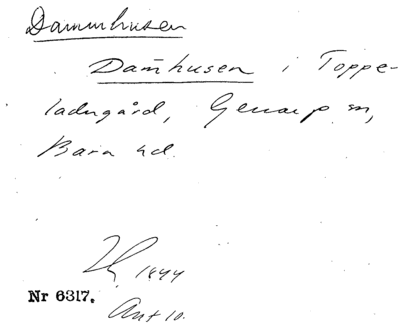 Dammhusen
Dam̄husen i Toppe-
ladugård, Genarp sn,
Bara hd.
1944
Nr 6317.
Ant 10.